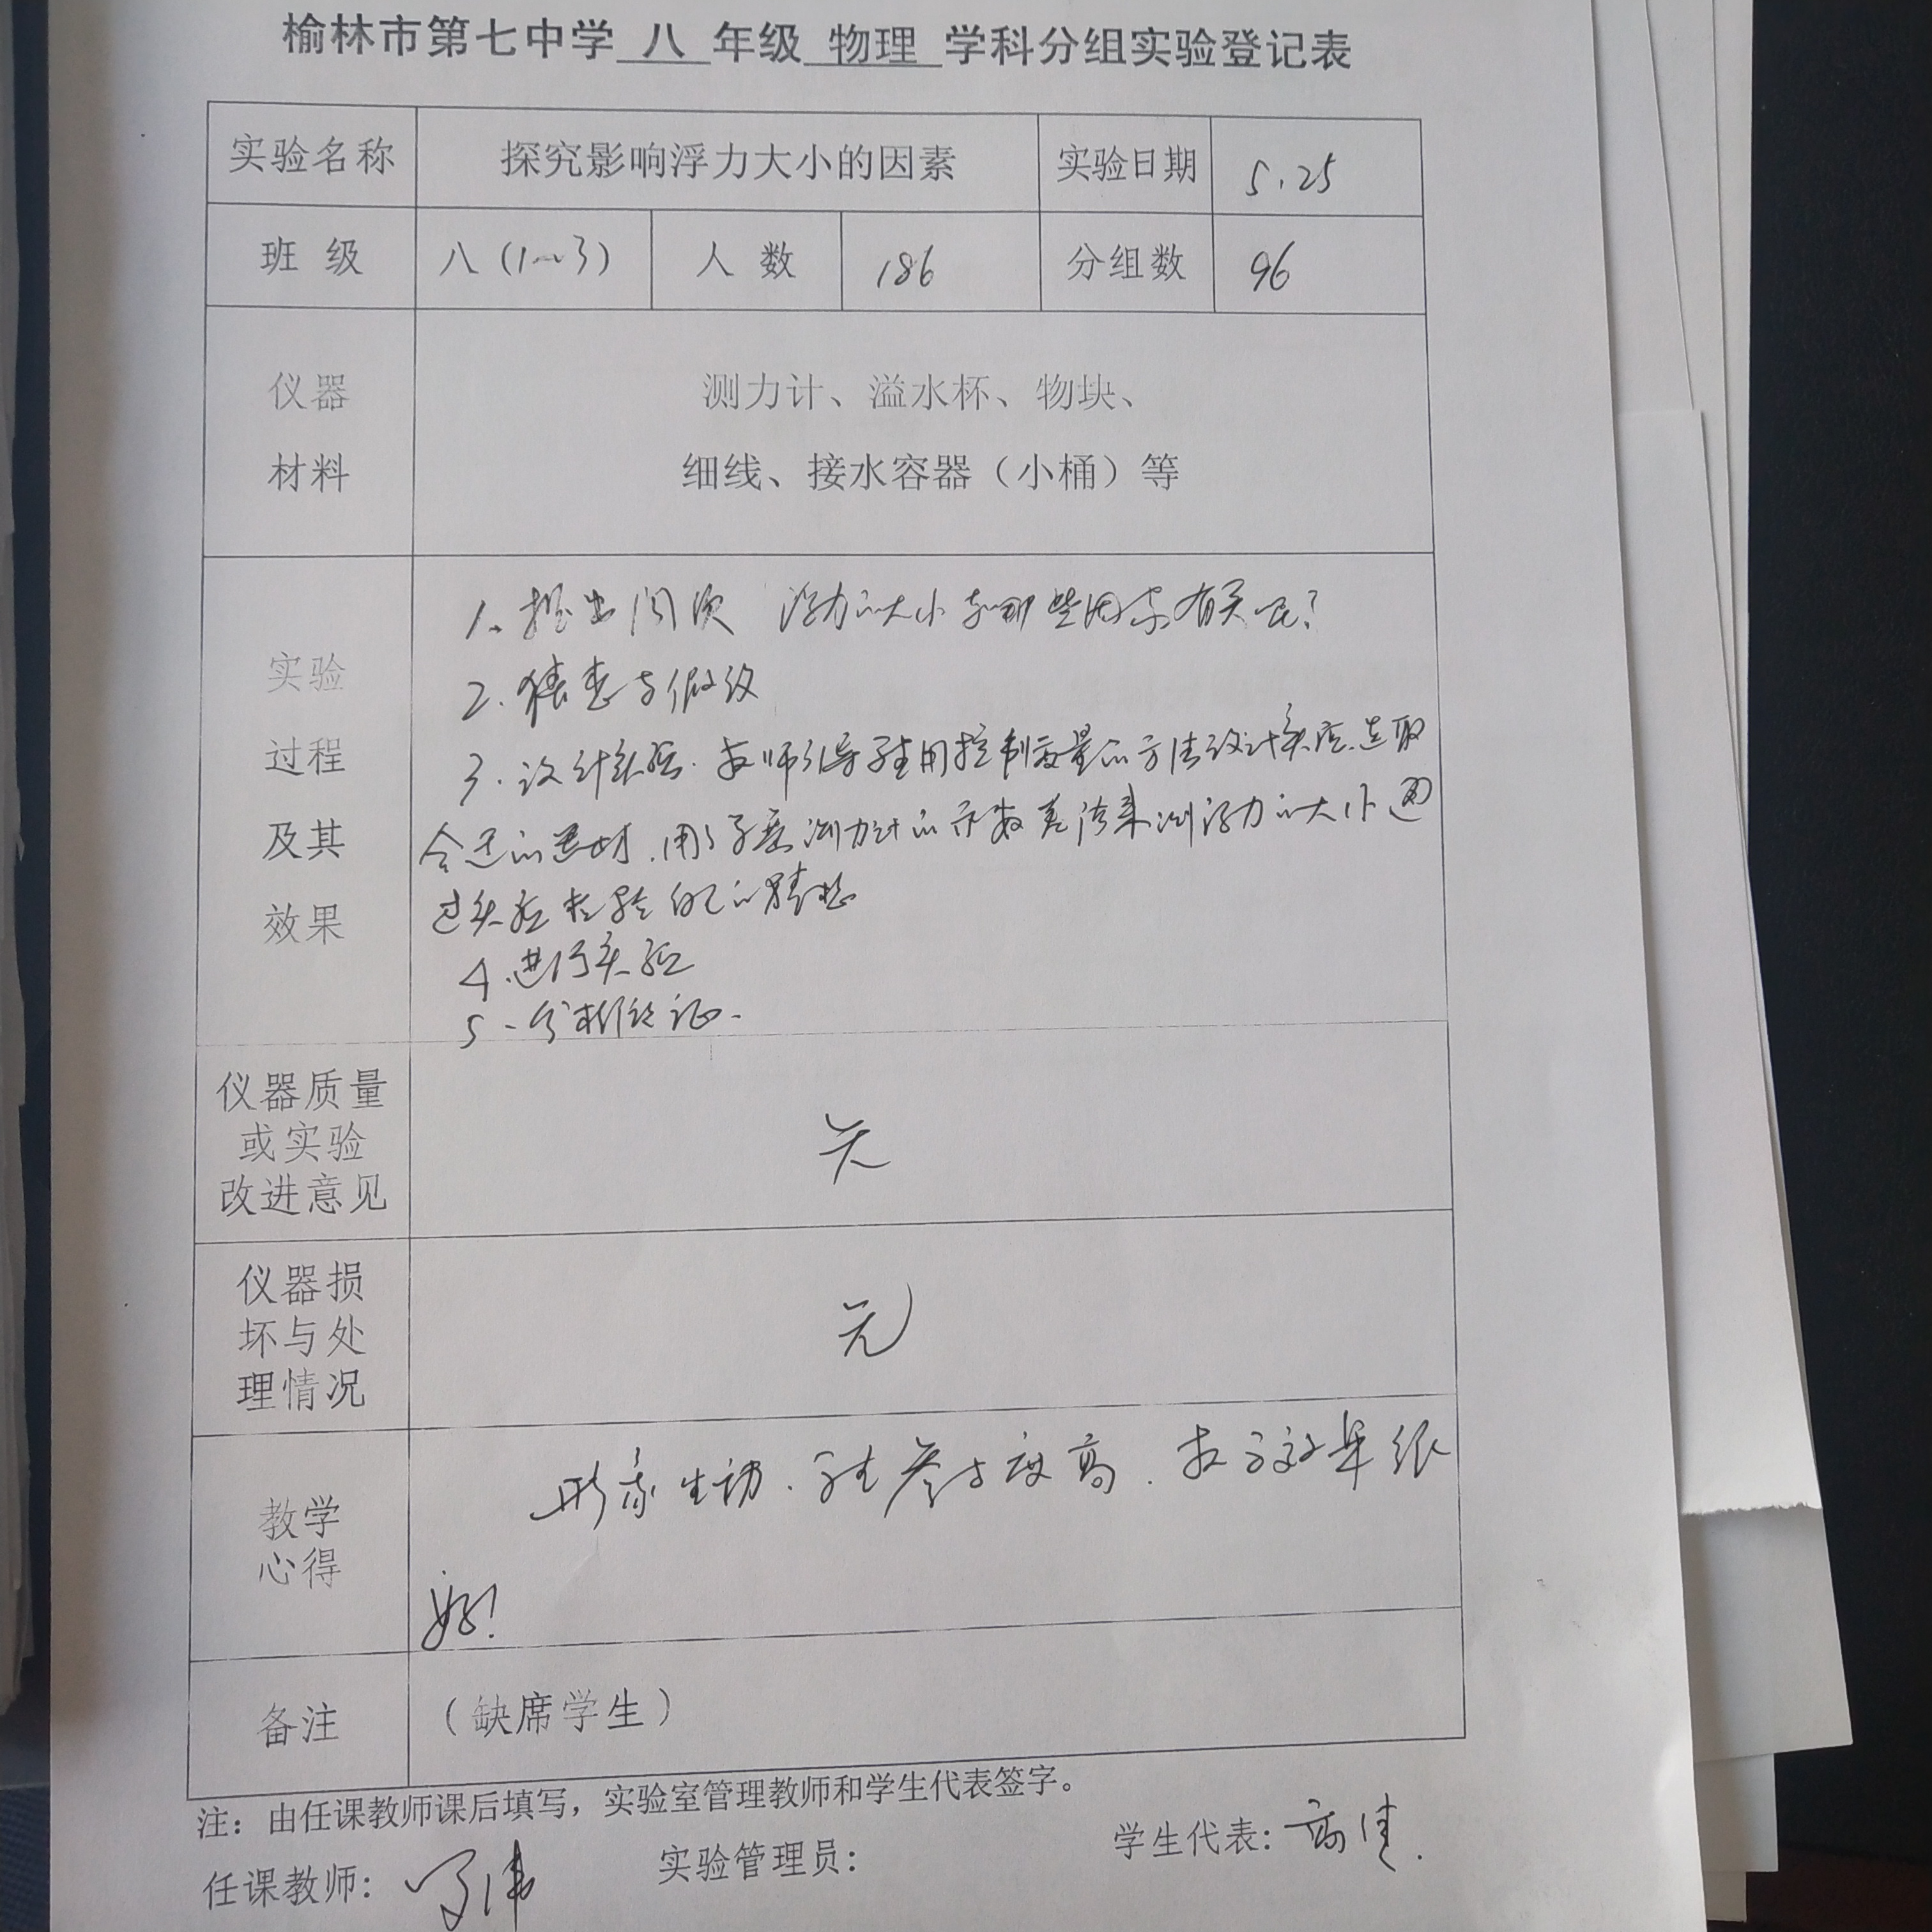 榆林市第七中学 八 年级 物理 学科分组实验登记表
实验名称 探究影响浮力大小的因素 实验日期 5.25
班 级 八(1~3) 人 数 186 分组数 96
仪器 材料
测力计、溢水杯、物块、
细线、接水容器（小桶）等
实验 过程 及其 效果
1. 提出问题 浮力的大小与哪些因素有关呢?
2. 猜想与假设
3. 设计实验. 教师引导学生用控制变量的方法设计实验.选取
合适的器材.用 测力计的示数差 来测浮力的大小 通
过实验来 自己的猜想
4.进行实验
5.分析论证.
仪器质量
或实验
改进意见
无
仪器损
坏与处
理情况
无
教学
心得
形象生动.学生参与度高.
好!
备注 （缺席学生）
注：由任课教师课后填写，实验室管理教师和学生代表签字。
任课教师: 实验管理员: 学生代表: